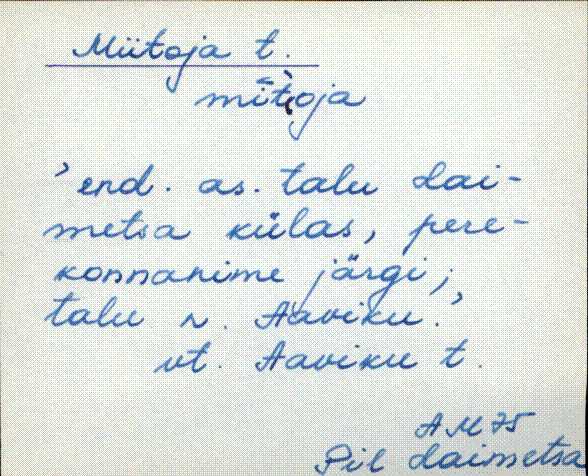 Miitoja t.
mīt͕̀oja
’end. as. talu Lai-
metsa külas, pere-
konnanime järgi;
talu n. Aaviku.’
vt. Aaviku t.
AM 75
Pil Laimetsa